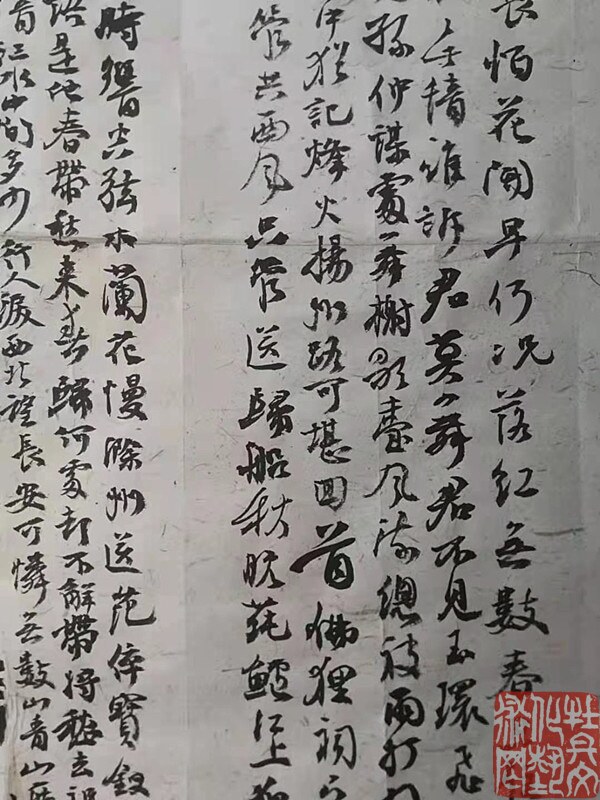 長怕花開早何况落红無數春
此情誰訴君莫舞君不見玉環飛
孫仲謀處舞榭歌臺風流總被雨打
中猶記烽火揚州路可堪回首佛狸祠
管共西風只管送歸船秋晚蓴鱸江上
時響空弦木蘭花慢滁州送范倅寶釵
語是他春帶愁來春歸何處却不解帶将愁去
江水中間多少行人淚西北望長安可憐無數山青山